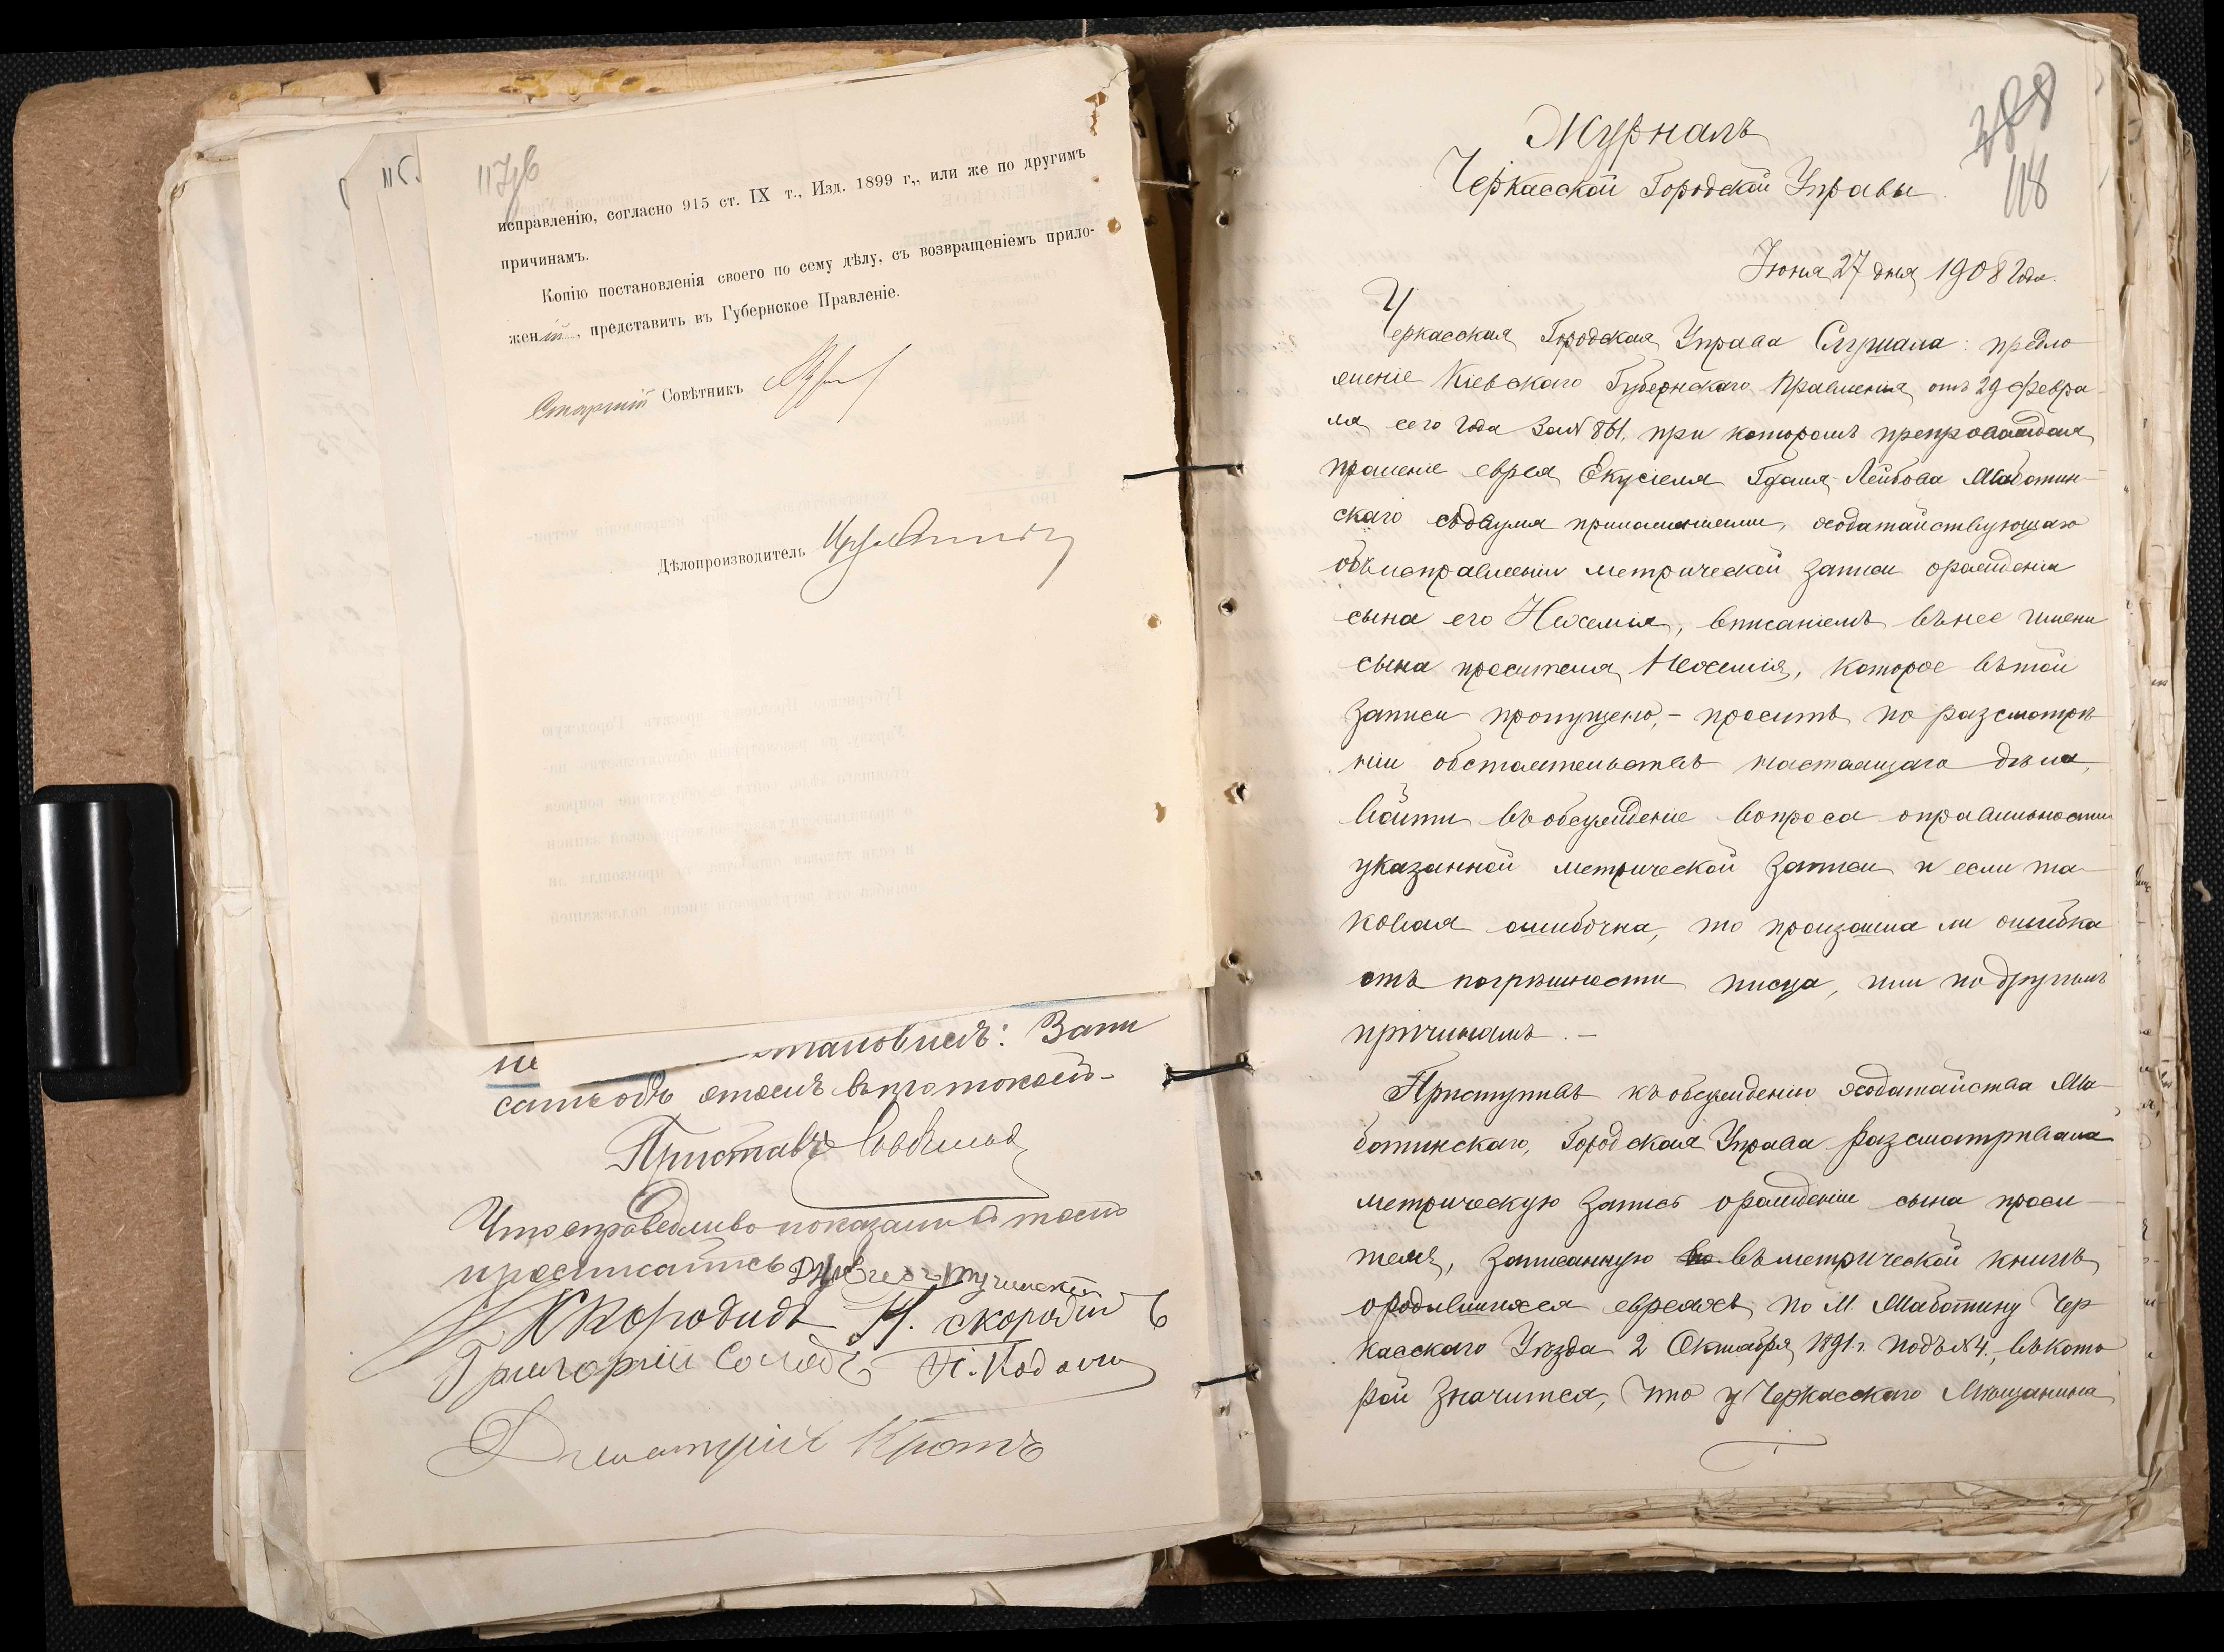 117об
исправленію, согласно 915 ст. IX т., Изд. 1899 г., или же по другимъ
причинамъ.
Копію постановленія своего по сему дѣлу, съ возвращеніемъ прило-
женій, представить въ Губернское Правленіе.
Старшій Совѣтникъ
Дѣлопроизводитель
становилъ: Запи
сать объ этомъ въ протоколъ
Приставъ
Что справедливо показали въ томъ
К Скородидъ Н. Скородій
Григорій
Дмитрій Кротъ
388
118
Журналъ
Черкасской Городской Управы.
Іюня 27 дня 1908 года.
Черкасская Городская Управа Слушала: предло
женіе Кіевскаго Губернскаго Правленія, отъ 29 Февра-
ля сего года за № 861, при которомъ препровождая
прошеніе еврея Екусіеля Гдаля-Лейбова Мабатин-
скаго съ двумя приложеніями, ходатайствующаго
объ исправленіи метрической записи о рожденіи
сына его Нехемія, вписаніемъ въ нее имени
сына просителя Нехемія, которое въ той
записи пропущено, - проситъ по разсмотрѣ
ніи обстоятельствъ настоящаго дѣла,
войти въ обсужденіе вопроса о правильности
указанной метрической записи и если та-
ковая ошибочна, то произошла ли ошибка
отъ погрѣшности писца, или по другимъ
причинамъ. -
Приступивъ къ обсужденію ходатайства Ма-
батинскаго, Городская Управа разсматривала
метрическую запись о рожденіи сына проси-
теля, записанную въ метрической книгѣ
о родившихся евреяхъ по м. Мабатину Чер
касскаго Уѣзда 2 Октября 1891 г. подъ № 4, въ кото
рой значится, что у Черкасскаго Мѣщанина